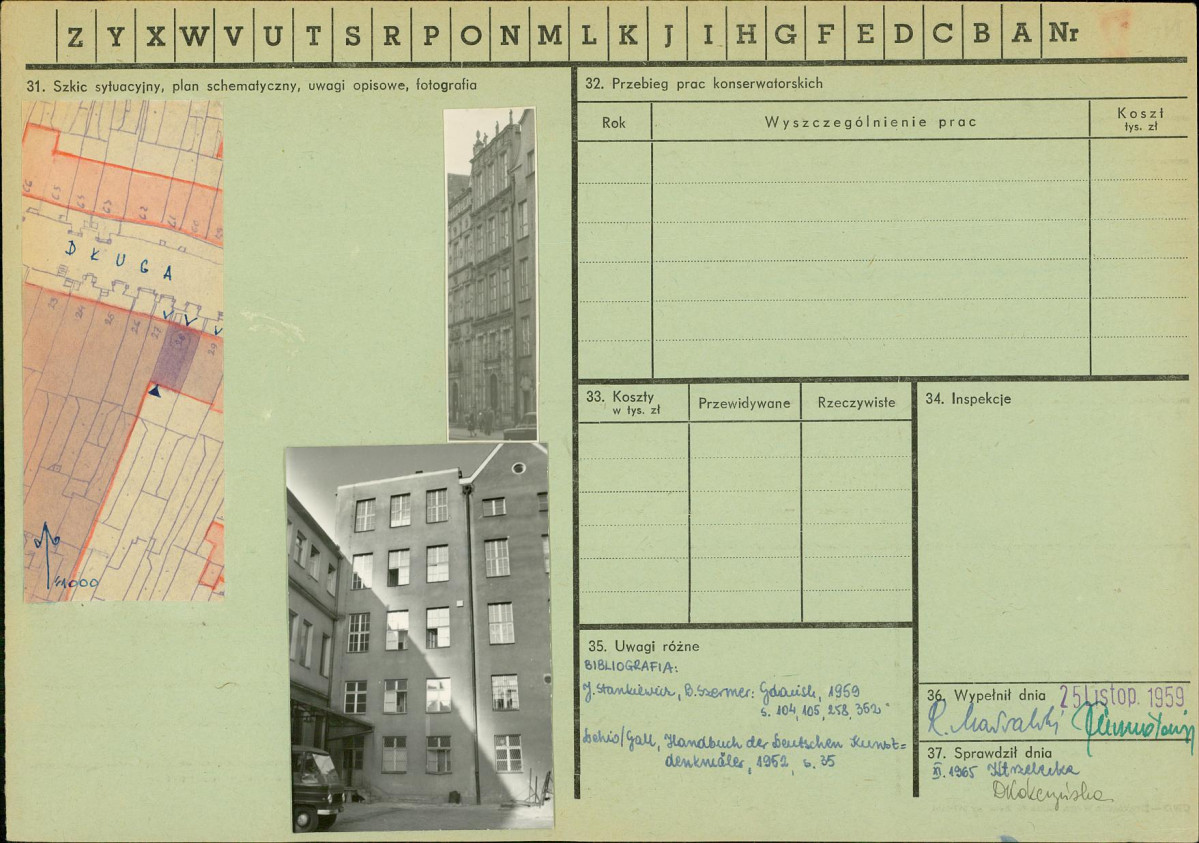 Z Y X W V U T S R P O N M L K J I H G F E D C B A Nr
31. Szkic sytuacyjny, plan schematyczny, uwagi opisowe, fotografia
66 65 64 63 62 61 60 59
DŁUGA
23 24 25 26 27 28 29
1:1000
32. Przebieg prac konserwatorskich
Rok
Wyszczególnienie prac
Koszt
tys. zł
33. Koszty
w tys. zł
Przewidywane
Rzeczywiste
34. Inspekcje
35. Uwagi różne
BIBLIOGRAFIA:
J. Stankiewicz, B. Szermer: Gdańsk, 1959
s. 104, 105, 258, 362
Dehio/Gall, Handbuch der Deutschen Kunst=
denkmäler, 1952, s. 35
36. Wypełnił dnia 25 Listop. 1959
37. Sprawdził dnia
XI. 1965 KStrzelecka